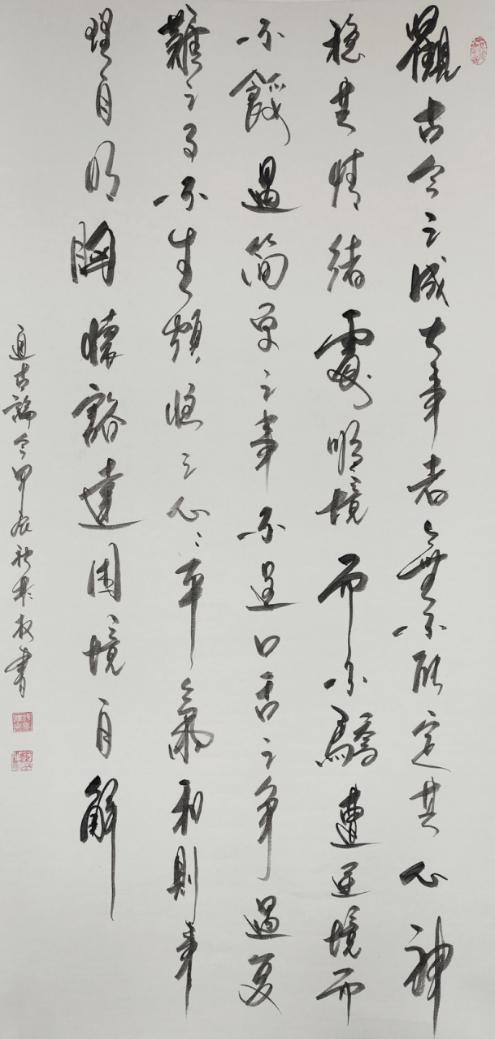 觀古今之成大事者無不能定其心神
穩其情緒處順境而不驕遭逆境而
不餒遇简单之事不逞口舌之争遇复
難之事不生煩惱之心心平氣和則事
理自明胸懷豁達困境自解
通古論今甲辰秋 書